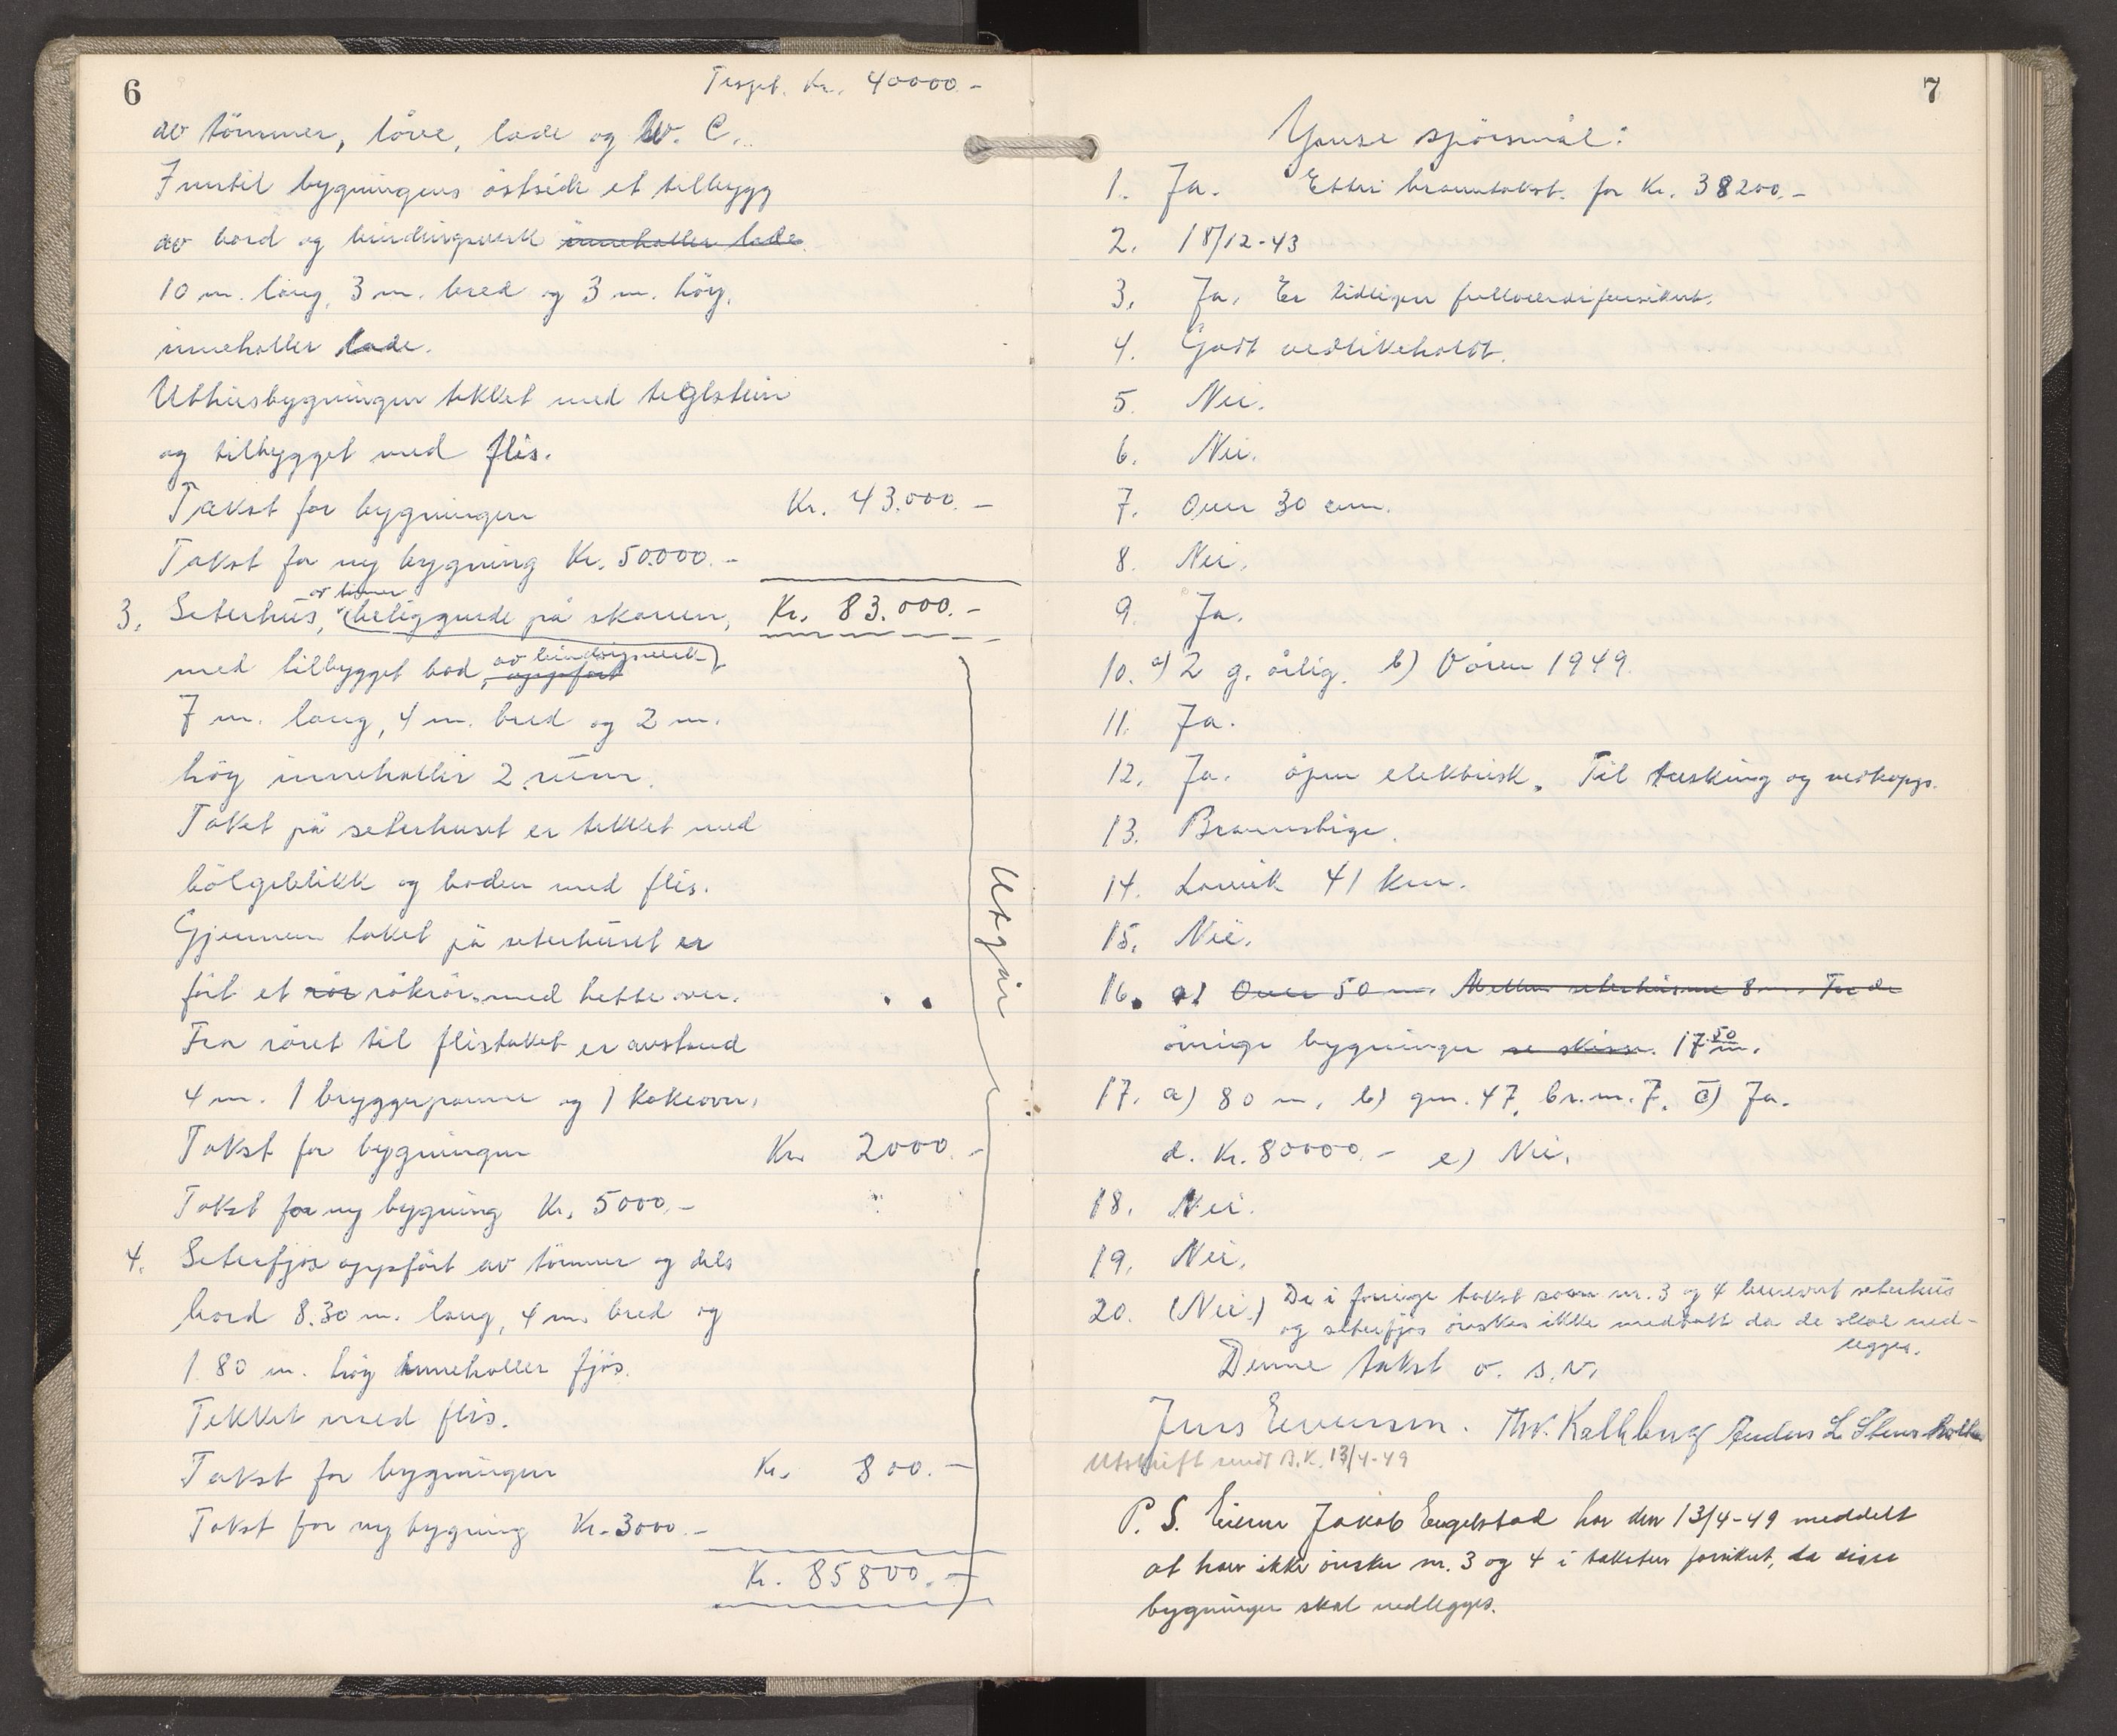 6
Kr. 40000.-
av tömmer, låve, lade og W. C.
Inntil bygningens östside et tilbygg
av bord og bindingsverk inneholler lade.
10 m. lang, 3 m. bred og 3 m. höy,
inneholler lade.
Uthusbygningen tekket med teglstein
og tilbygget med flis.
Takst for bygningen Kr. 43.000.-
Takst for ny bygning Kr. 50.000.-
av tömmer
3. Seterhus, beliggende på skauen, Kr. 83.000.-
av bindingsverk
med tilbygget bod, oppfört
7 m. lang, 4 m. bred og 2 m.
höy inneholler 2 rum.
Taket på seterhuset er tekket med
bölgeblikk og boden med flis.
Gjennem taket på seterhuset er
fört et rör rökrör med hette over.
Fra röret til flistaket er avstand
4 m. 1 bryggepanne og 1 kakeovn,
Takst for bygningen Kr. 2000.-
Takst for ny bygning Kr. 5000.-
4. Seterfjös oppfört av tömmer og dels
bord 8.30 m. lang, 4 m. bred og
1.80 m. höy inneholler fjös.
Tekket med flis.
Takst for bygningen Kr. 800.-
Takst for ny bygning Kr. 3000.-
Kr. 85800.-
Utgår
7
spörsmål:
1. Ja. Etter branntakst. for Kr. 38200.-
2. 18/12-43
3. Ja. Er tidligere fullverdiforsikret.
4. Godt vedlikeholdt.
5. Nei.
6. Nei.
7. Over 30 cm.
8. Nei.
9. Ja.
10. a) 2 g. årlig. b) Våren 1949.
11. Ja.
12. Ja. åpen elektrisk. Til tresking og vedkapp.
13. Brannstige.
14. Larvik 41 km.
15. Nei.
16. a) Over 50 m. Mellom seterhusene 8 m. Fra de
övrige bygninger se skisse. 17.50 m.
17. a) 80 m, b) gn. 47, br.n. 7. c) Ja.
d. Kr. 80000.- e) Nei.
18. Nei.
19. Nei.
20. (Nei.) De i forrige takst som nr. 3 og 4 benevnt seterhus
og seterfjös önskes ikke medtatt da de skal ned-
legges.
Denne takst o. s. v.
Jens Evensen. Thv. Kalleberg Anders L Stensholt
Utskrift sendt B.K. 13/4-49
P. S. Eieren Jakob Engelstad har den 13/4-49 meddelt
at han ikke önsker nr. 3 og 4 i taksten forsikret, da disse
bygninger skal nedlegges.